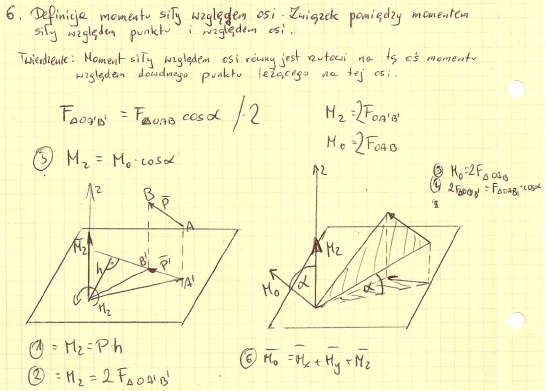 6. Definicja momentu siły względem osi. Związek pomiędzy momentem
siły względem punktu i względem osi.
Twierdzenie: Moment siły względem osi równy jest rzutowi na tą oś momentu
względem dowolnego punktu leżącego na tej osi.
F△OA'B' = F△OAB cosα /·2
M2 = 2FOA'B'
M0 = 2FOAB
③ Mz = M0 · cosα
③ M0 = 2F△OAB
④ 2F△OA'B' = F△OAB · cosα
z
B
P̄
A
M̄z
h
B'
P̄'
A'
Mz
z
M̄z
M̄0
α
α
① = Mz = P·h
② = Mz = 2F△OA'B'
⑥ M̄0 = M̄x + M̄y + M̄z